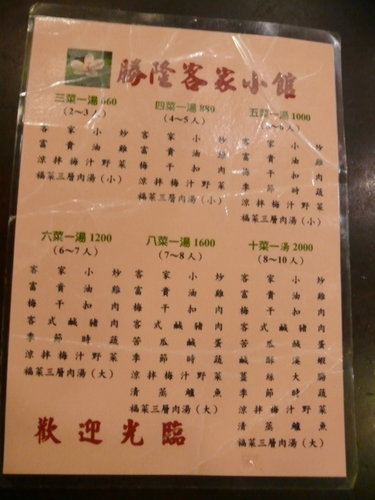 勝隆客家小館
三菜一湯 660
(2～3 人)
客家小炒
富貴油雞
涼拌梅汁野菜
福菜三層肉湯（小）
四菜一湯 880
(4～5 人)
客家小炒
富貴油雞
梅干扣肉
涼拌梅汁野菜
福菜三層肉湯（小）
五菜一湯 1000
客家小炒
富貴油雞
梅干扣肉
季節時蔬
涼拌梅汁野菜
福菜三層肉湯（小）
六菜一湯 1200
(6～7 人)
客家小炒
富貴油雞
梅干扣肉
客式鹹豬肉
季節時蔬
涼拌梅汁野菜
福菜三層肉湯（大）
八菜一湯 1600
(7～8 人)
客家小炒
富貴油雞
梅干扣肉
客式鹹豬肉
苦瓜鹹蛋
季節時蔬
涼拌梅汁野菜
清蒸鱸魚
福菜三層肉湯（大）
十菜一湯 2000
(8～10 人)
客家小炒
富貴油雞
梅干扣肉
客式鹹豬肉
苦瓜鹹蛋
鹹酥溪蝦
薑絲大腸
季節時蔬
涼拌梅汁野菜
清蒸鱸魚
福菜三層肉湯（大）
歡迎光臨